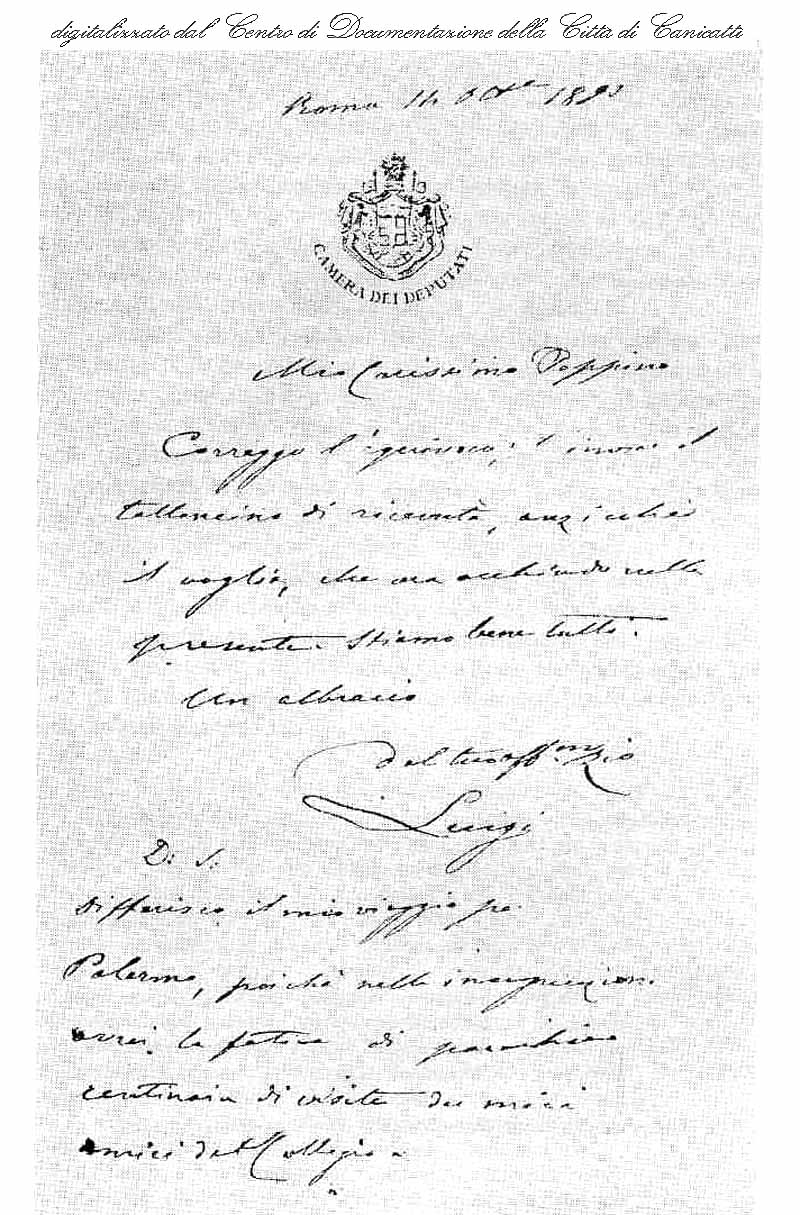 digitalizzato dal Centro di Documentazione della Città di Canicattì
Roma 14 8bre
CAMERA DEI DEPUTATI
Mio Carissimo Peppino
Correggo l'equivoco; il
talloncino di ricevuta, anzicchè
il vaglia, che ora acchiudo nella
presente. Stiamo bene tutti.
Un abbraccio
dal tuo aff.mo zio
Luigi
D. S.
Differisco il mio viaggio per
Palermo, poichè nella inaugurazione
avrei la fatica di parecchie
centinaia di visite dei miei
amici del Collegio